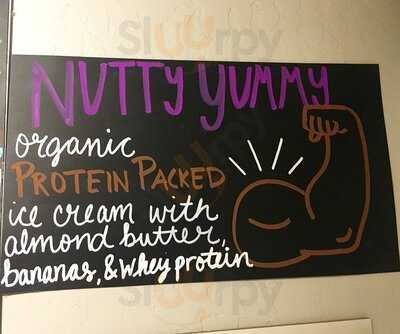 Slurpy
NUTTY YUMMY
organic
PROTEIN PACKED
ice cream with
almond butter,
bananas, & whey protein